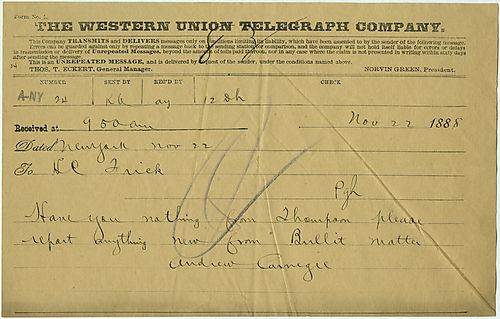 Form No. 1.
THE WESTERN UNION TELEGRAPH COMPANY.
This Company TRANSMITS and DELIVERS messages only on conditions limiting its liability, which have been assented to by the sender of the following message.
Errors can be guarded against only by repeating a message back to the sending station for comparison, and the company will not hold itself liable for errors or delays
in transmission or delivery of Unrepeated Messages, beyond the amount of tolls paid thereon, nor in any case where the claim is not presented in writing within sixty days
after sending the message.
This is an UNREPEATED MESSAGE, and is delivered by request of the sender, under the conditions named above.
THOS. T. ECKERT, General Manager. NORVIN GREEN, President.
NUMBER SENT BY REC'D BY CHECK
A-NY 24 ay 12 Dh
Received at 9 50 am Nov 22 1888
Dated Newyork Nov 22
To H C Frick
Pgh
Have you nothing from Thompson please
report anything new from Bullit matter
Andrew Carnegie